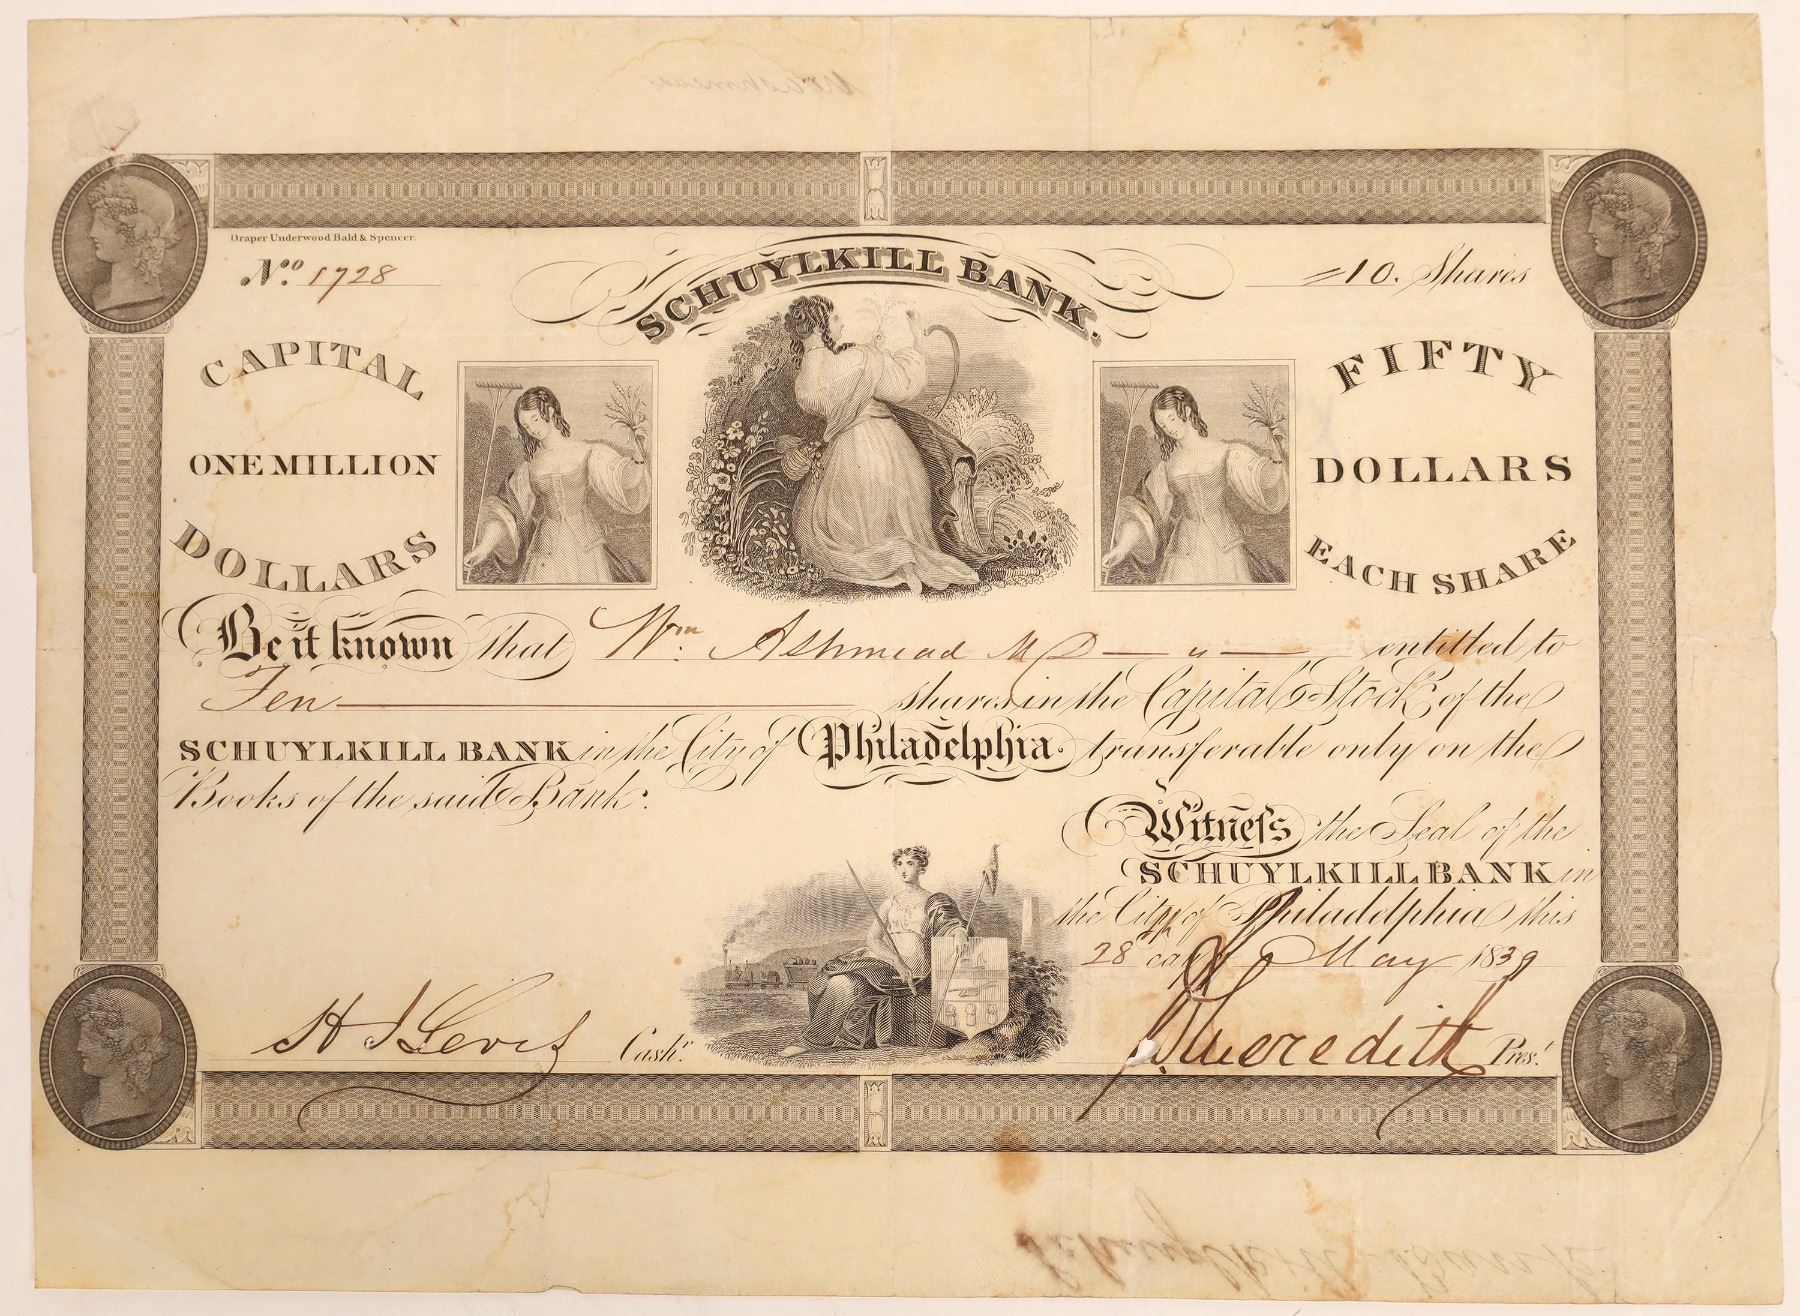 Draper Underwood Bald & Spencer.
No. 1728
SCHUYLKILL BANK.
=10. Shares
CAPITAL
ONE MILLION
DOLLARS
FIFTY
DOLLARS
EACH SHARE
Be it known That Wm. Ashmead MD — " — entitled to
Ten — shares in the Capital Stock of the
SCHUYLKILL BANK in the City of Philadelphia. transferable only on the
Books of the said Bank.
Witness the Seal of the
SCHUYLKILL BANK in
the City of Philadelphia this
28th day of May 1839
H J Levis Cashr.
Meredith Prest.
Schuylkill Bank